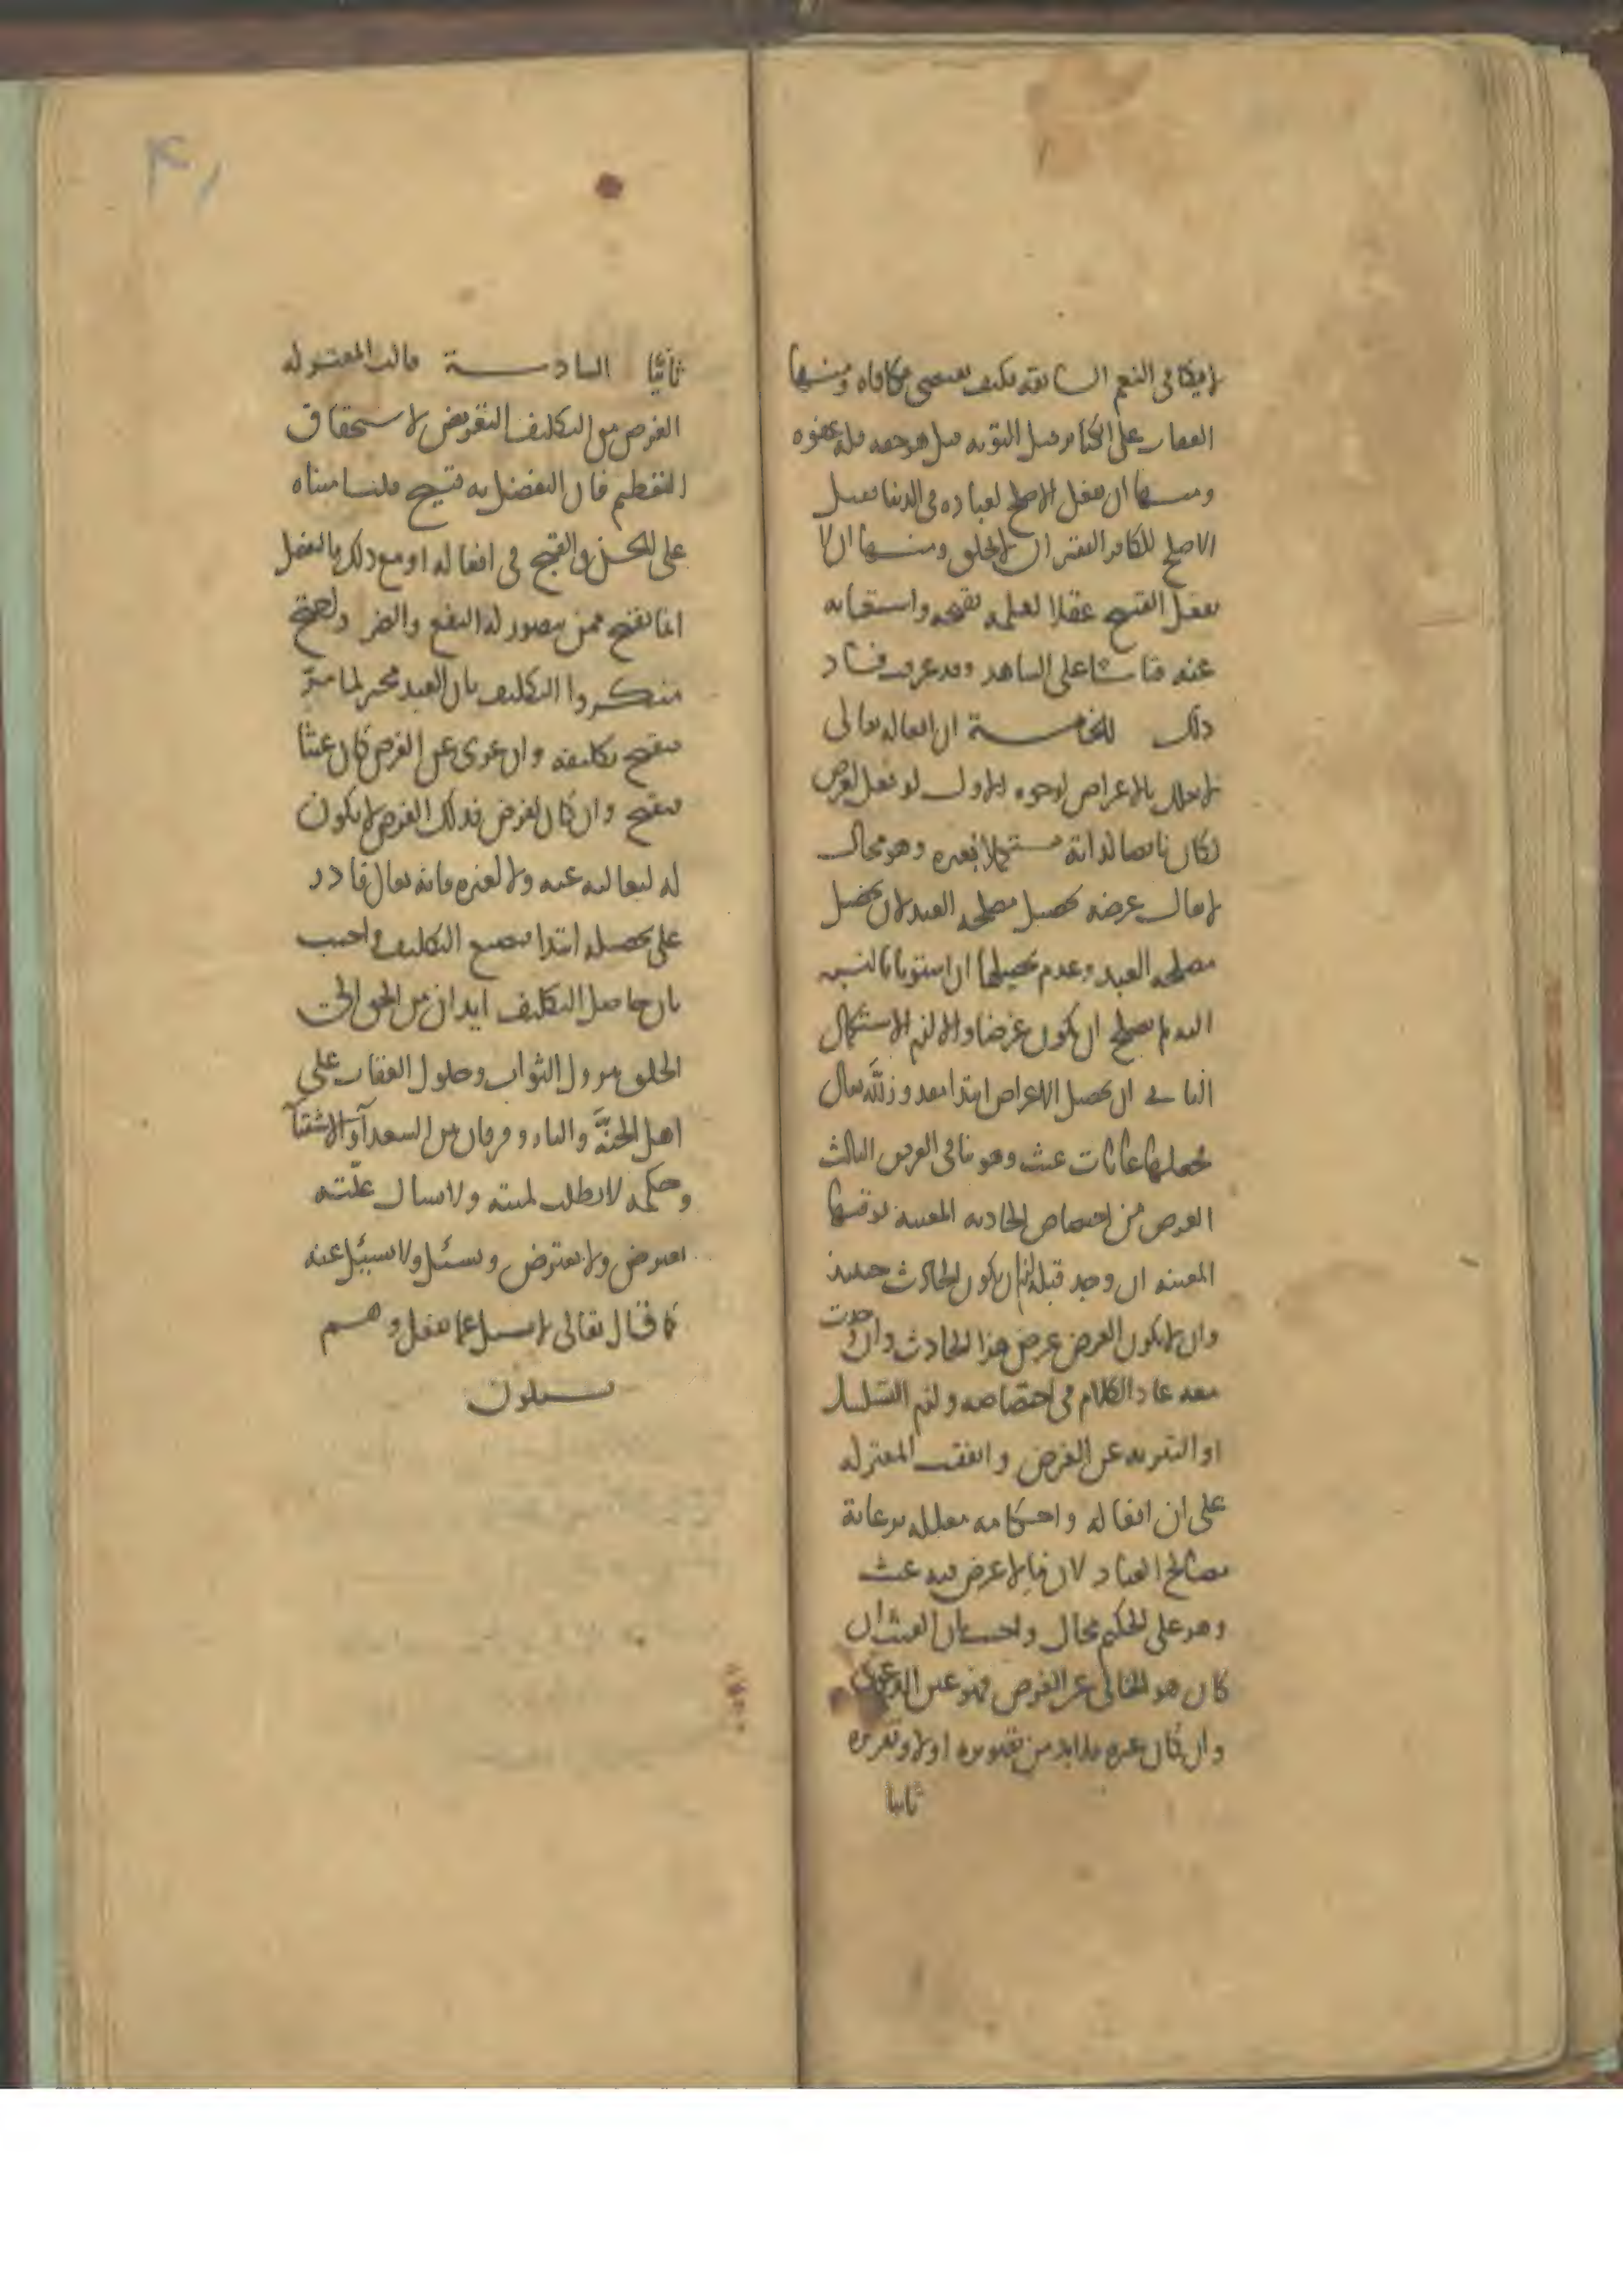 لا يكافى النعم السابقه فكيف يقتضى مكافاه ومنها
العقاب على الكبائر قبل التوبه قيل هو حقه فله عفوه
ومنها ان يفعل الاصلح لعباده فى الدنيا فقيل
الاصلح للكافر الفقير ان لا يخلق ومنها ان لا
يفعل القبيح عقلا لعلمه بقبحه واستغنايه
عنه قياسا على الشاهد وقد عرفت فساد
ذلك الخامسة ان افعاله تعالى
لا تعلل بالاغراض لوجوه الاول لو فعل لغرض
لكان ناقصا لذاته مستكملا بغيره وهو محال
لا يقال غرضه تحصيل مصلحه العبد لان تحصيل
مصلحه العبد وعدم تحصيلها ان استويا بالنسبه
اليه لم يصلح ان يكون غرضا والا لزم الاستكمال
الثانى ان تحصيل الاغراض ابتدا مقدور لله تعالى
فجعلها غايات عبث وهو ينافى الغرض الثالث
الغرض من اختصاص الحادثه المعينه بوقتها
المعينه ان وجد قبله لزم ان يكون الحادث حينئذ
وان لا يكون الغرض غرض هذا الحادث وان حدث
معه عاد الكلام فى اختصاصه ولزم التسلسل
او التعريه عن الغرض واتفقت المعتزله
على ان افعاله واحكامه معلله برعاية
مصالح العباد لان ما لا غرض فيه عبث
وهو على الحكيم محال واجيب بان العبث ان
كان هو الخالى عن الغرض فهو عين الدعوى
وان كان غيره فلا بد من تصويره اولا وتقريره
ثانيا
ثانيا السادسة قالت المعتزله
الغرض من التكليف التعريض لاستحقاق
التعظيم فان التفضل به قبيح قلنا مبناه
على الحسن والقبح فى افعاله او مع ذلك فالتفضل
انما يقبح ممن يتصور له النفع والضر واحتج
منكروا التكليف بان العبد مجبر لما مر
فيقبح تكليفه وان عرى عن الغرض كان عبثا
فيقبح وان كان لغرض فذلك الغرض لا يكون
له لتعاليه عنه ولا لغيره فانه تعالى قادر
على تحصيله ابتدا فيضيع التكليف واجيب
بان حاصل التكليف ايذان من الحق الى
الخلق بنزول الثواب وحلول العقاب على
اهل الجنة والنار وفرقان بين السعدآ والاشقيآ
وحكمه لا يطلب لميته ولا يسال علته
يعترض ولا يعترض ويسئل ولا يسئل عنه
كما قال تعالى لا يسل عما يفعل وهم
يسلون